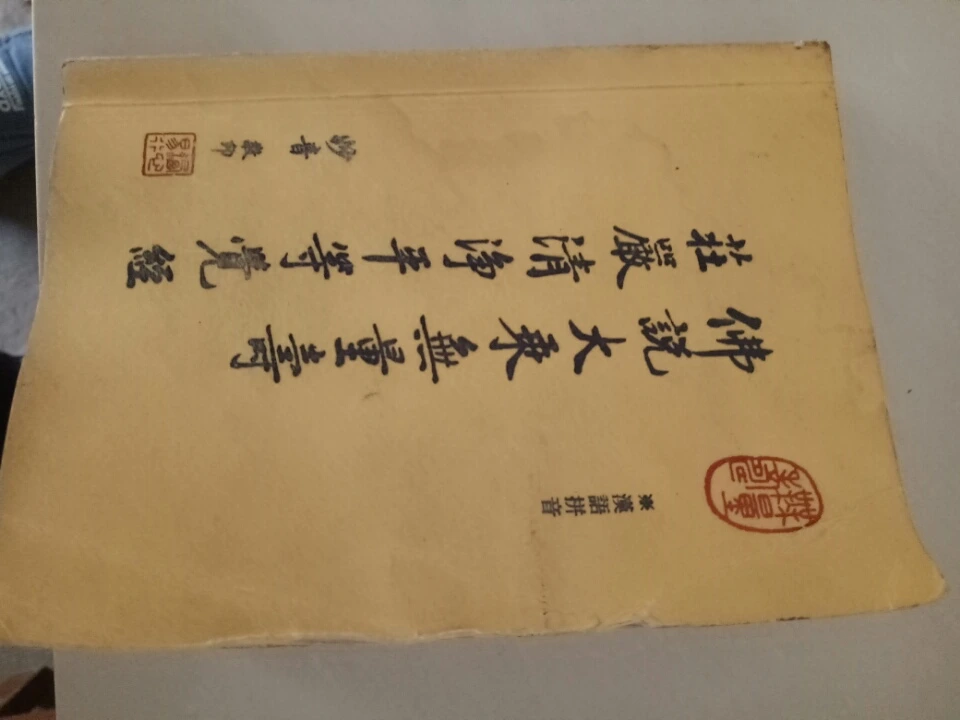 無量
※漢語拼音
佛說大乘無量壽
莊嚴清淨平等覺經
妙音 敬印